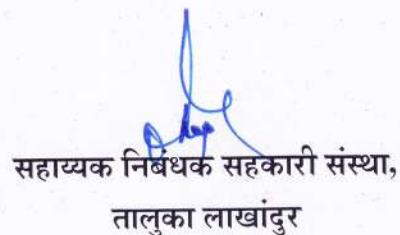 सहाय्यक निबंधक सहकारी संस्था,
तालुका लाखांदुर